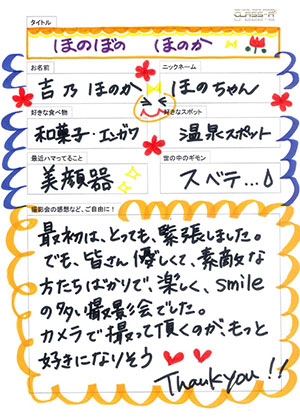 CLASS-A
タイトル
ほのぼの ほのか
お名前
ニックネーム
吉乃 ほのか
ほのちゃん
好きな食べ物
好きなスポット
和菓子・エンガワ
温泉スポット
最近ハマってること
世の中のギモン
美顔器
スベテ...
撮影会の感想など、ご自由に！
最初は、とっても、緊張しました。
でも、皆さん優しくて、素敵な
方たちばかりで、楽しく、smile
の多い撮影会でした。
カメラで撮って頂くのが、もっと
好きになりそう
Thank you!!